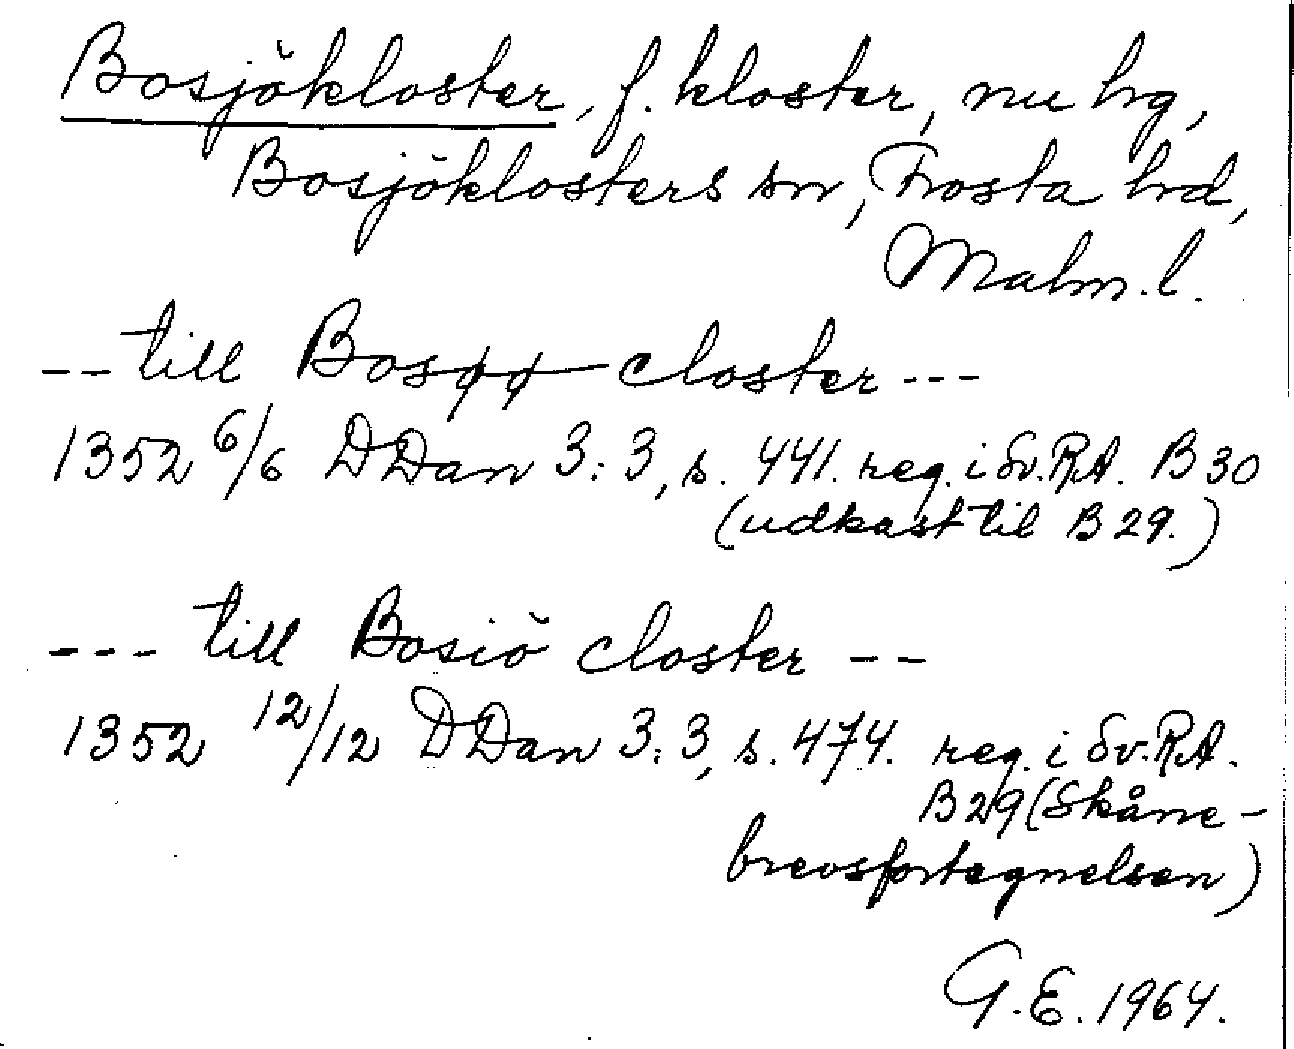 Bosjökloster, f. kloster, nu hg,
Bosjöklosters sn, Frosta hd,
Malm. l.
-- till Bosøø closter ---
1352 6/6 DDan 3:3, s. 441. reg. i Sv. RA. B 30
(udkast til B 29.)
--- till Bosiö closter --
1352 12/12 DDan 3:3, s. 474. reg. i Sv. RA.
B 29 (Skåne-
brevsfortegnelsen)
G. E. 1964.